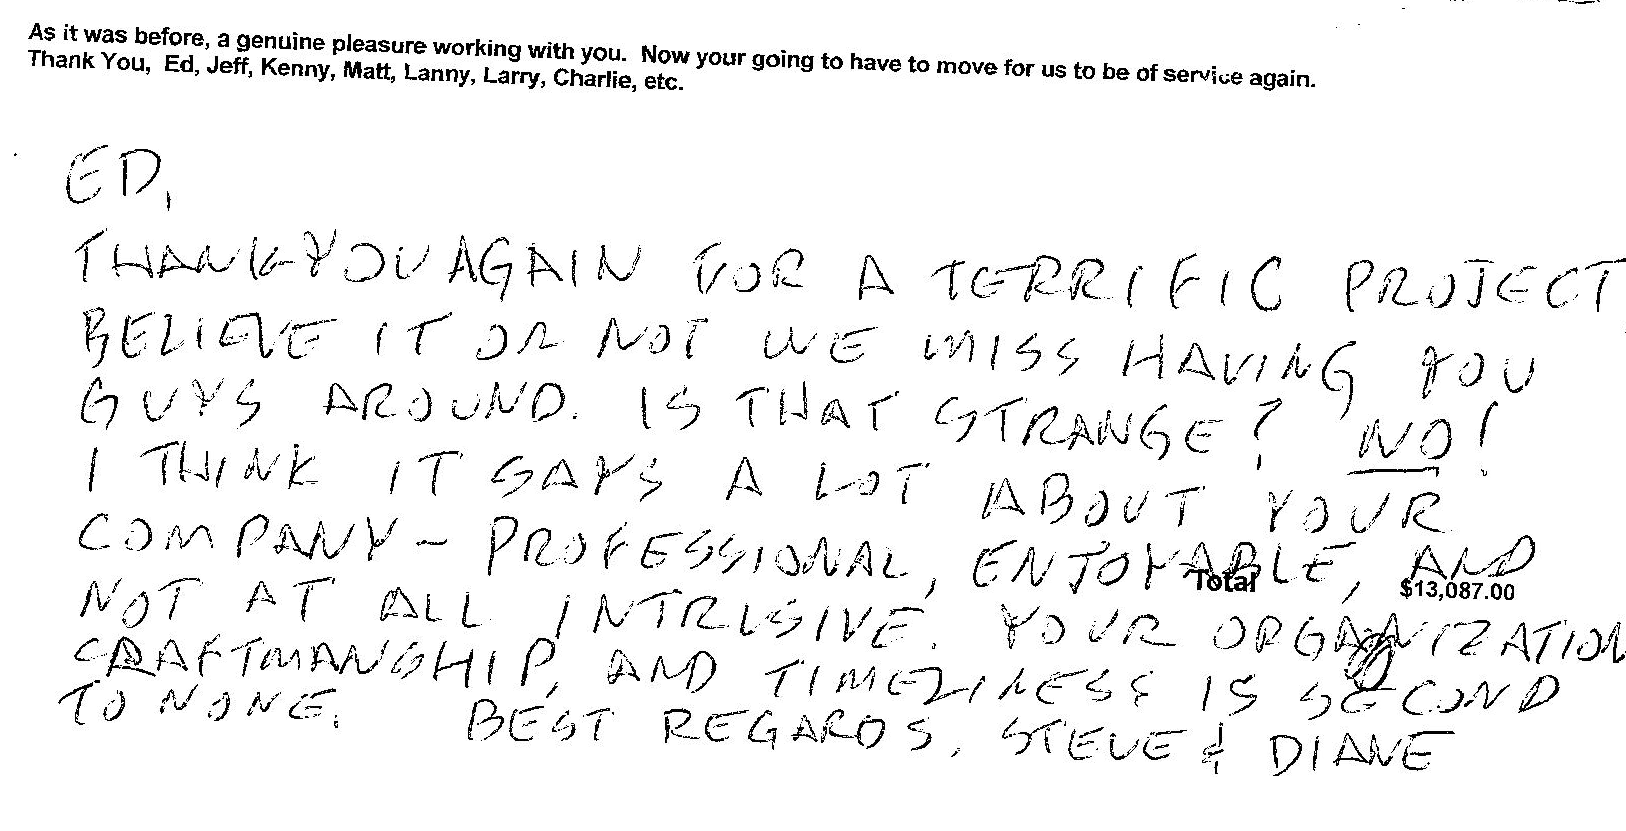 As it was before, a genuine pleasure working with you. Now your going to have to move for us to be of service again.
Thank You, Ed, Jeff, Kenny, Matt, Lanny, Larry, Charlie, etc.
ED,
THANK YOU AGAIN FOR A TERRIFIC PROJECT
BELIEVE IT OR NOT WE MISS HAVING YOU
GUYS AROUND. IS THAT STRANGE? NO!
I THINK IT SAYS A LOT ABOUT YOUR
COMPANY - PROFESSIONAL, ENJOYABLE, AND
Total $13,087.00
NOT AT ALL INTRUSIVE. YOUR ORGANIZATION
CRAFTMANSHIP, AND TIMELINESS IS SECOND
TO NONE. BEST REGARDS, STEVE & DIANE